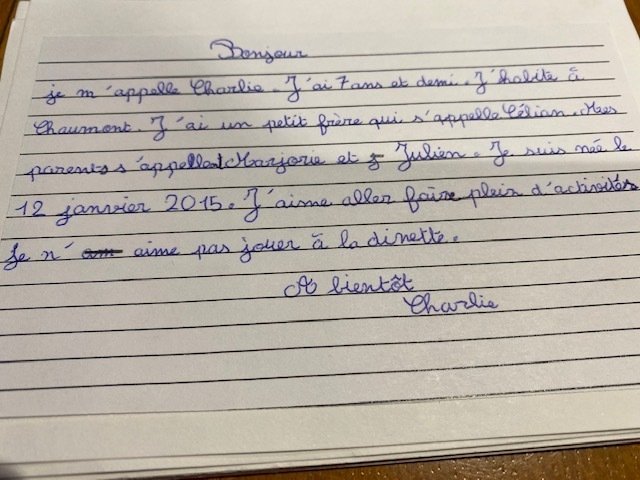 Bonjour
je m'appelle Charlie. J'ai 7 ans et demi. J'habite à
Chaumont. J'ai un petit frère qui s'appelle Célian. Mes
parents s'appellent Marjorie et Julien. Je suis née le
12 janvier 2015. J'aime aller faire plein d'activités.
Je n' aime pas jouer à la dinette.
A bientôt
Charlie